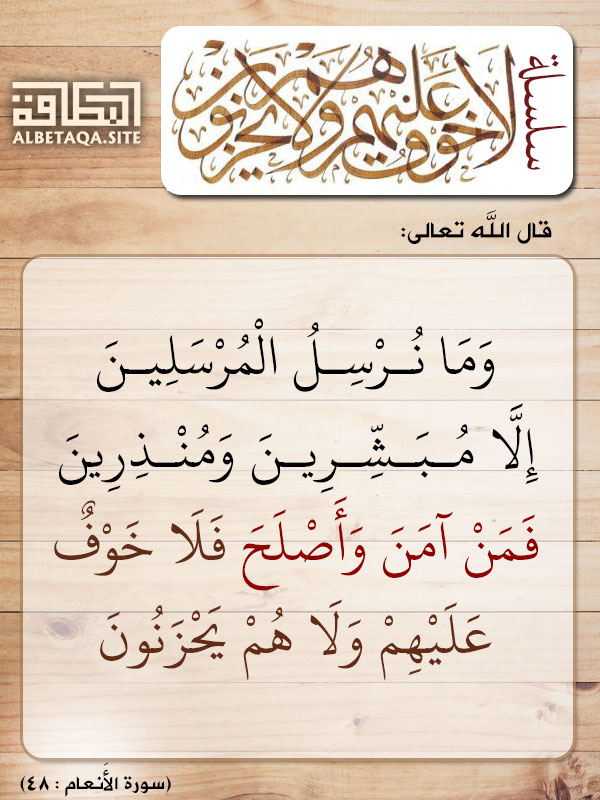 سلسلة
لا خوف عليهم ولا هم يحزنون
البطاقة
ALBETAQA.SITE
قال اللَّه تعالى:
وَمَا نُرْسِلُ الْمُرْسَلِينَ
إِلَّا مُبَشِّرِينَ وَمُنْذِرِينَ
فَمَنْ آمَنَ وَأَصْلَحَ فَلَا خَوْفٌ
عَلَيْهِمْ وَلَا هُمْ يَحْزَنُونَ
(سورة الأَنعام : ٤٨)